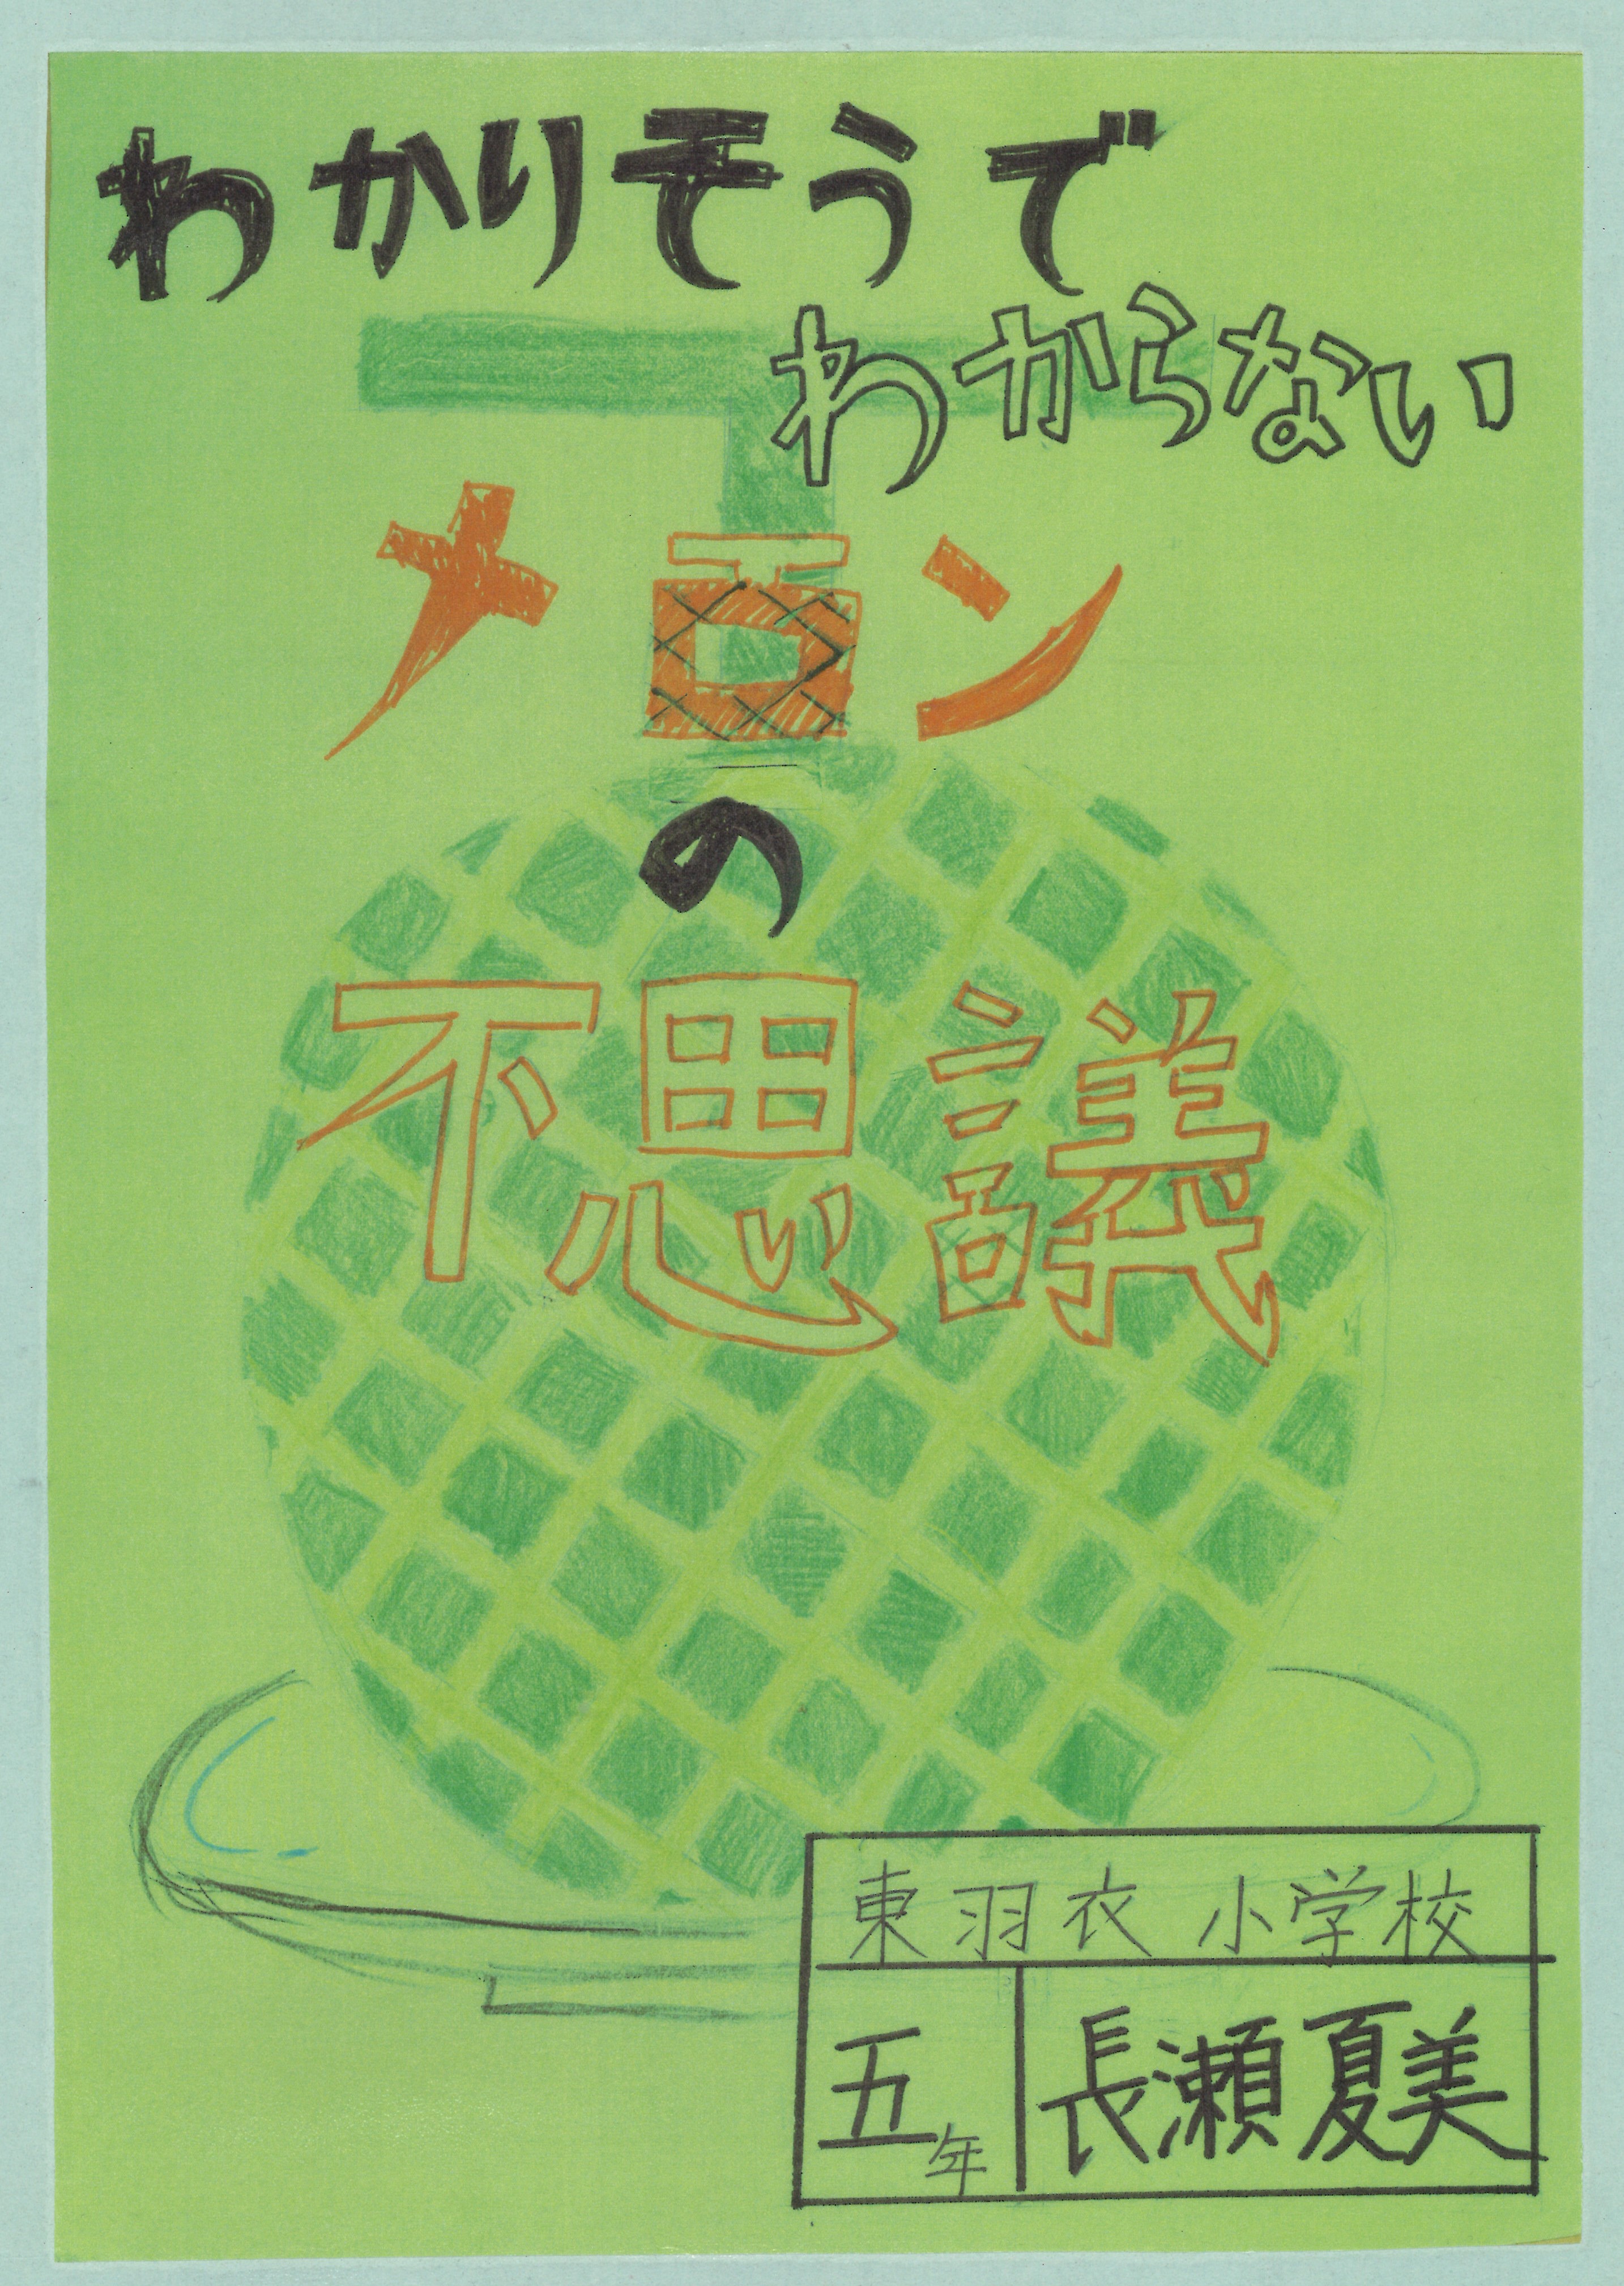 わかりそうで
わからない
メロン
の
不思議
東羽衣小学校
五年
長瀬夏美